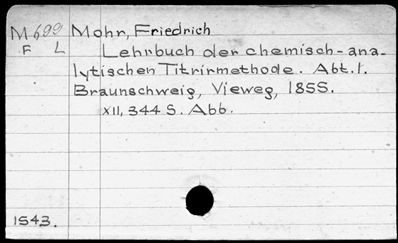 M 699 Mohr, Friedrich
F L Lehrbuch der chemisch-ana-
lytischen Titrirmethode. Abt. 1.
Braunschweig, Vieweg, 1855.
XII, 344 S. Abb.
1543.